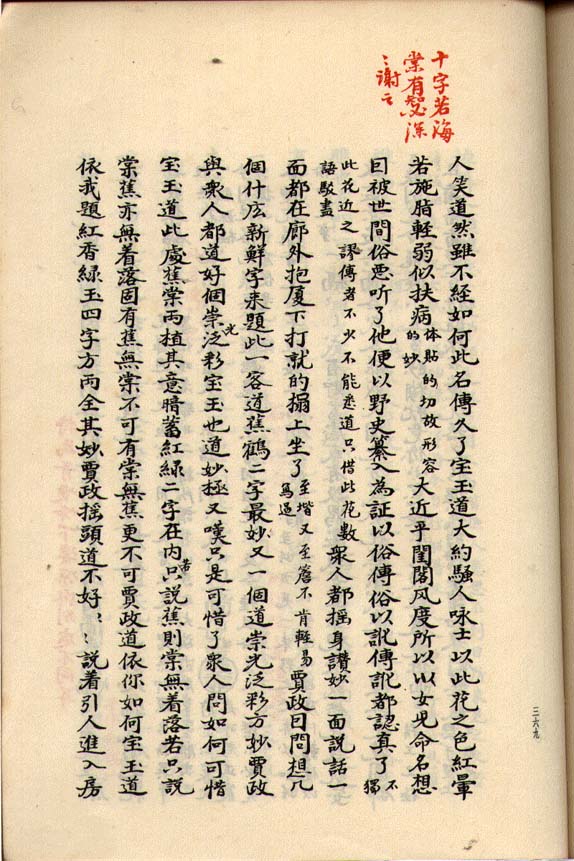 十字若海
棠有知必深
〻謝之
人笑道然雖不經如何此名傳久了宝玉道大約騷人咏士以此花之色紅暈
若施脂輕弱似扶病体貼的切故形容的妙大近乎閨閣风度所以以女児命名想
因被世間俗悪听了他便以野史纂入為証以俗傳俗以訛傳訛都認真了不獨
此花近之謬傳者不少不能悉道只借此花數語駁盡衆人都搖身讚妙一面說話一
面都在廊外抱厦下打就的榻上坐了至堦又至簷不肯輕易寫過賈政因問想几
個什庅新鮮字来題此一客道蕉鶴二字最妙又一個道崇光泛彩方妙賈政
與衆人都道好個崇光泛彩宝玉也道妙極又嘆只是可惜了衆人問如何可惜
宝玉道此處蕉棠両植其意暗蓄紅綠二字在内若只說蕉則棠無着落若只說
棠蕉亦無着落固有蕉無棠不可有棠無蕉更不可賈政道依你如何宝玉道
依我題紅香綠玉四字方両全其妙賈政搖頭道不好〻〻說着引人進入房
三六九